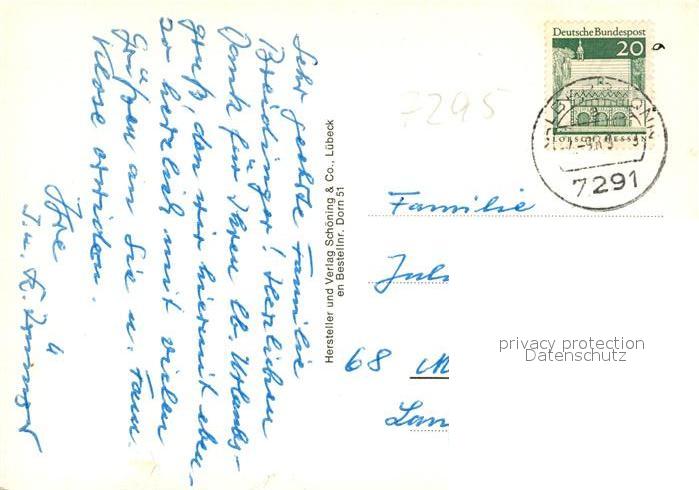 Sehr geehrte Familie
Breidinger! Herzlichen
Dank für Ihren lb. Urlaubs-
gruß den wir hiermit eben-
so herzlich mit vielen
Grüßen an Sie u. Fam.
Klose erwidern.
Ihre
J. u. K.
Hersteller und Verlag Schöning & Co., Lübeck
en Bestellnr. Dorn 51
7295
Deutsche Bundespost
20
LORSCH/HESSEN
7291
Familie
Jul
68 M
Lan
privacy protection
Datenschutz